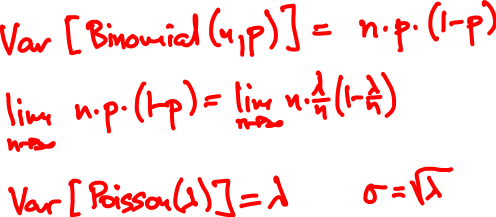 Var [Binomial(n,p)] = n·p·(1-p)
lim n→∞ n·p·(1-p) = lim n→∞ n·λ/n(1-λ/n)
Var [Poisson(λ)] = λ σ=√λ